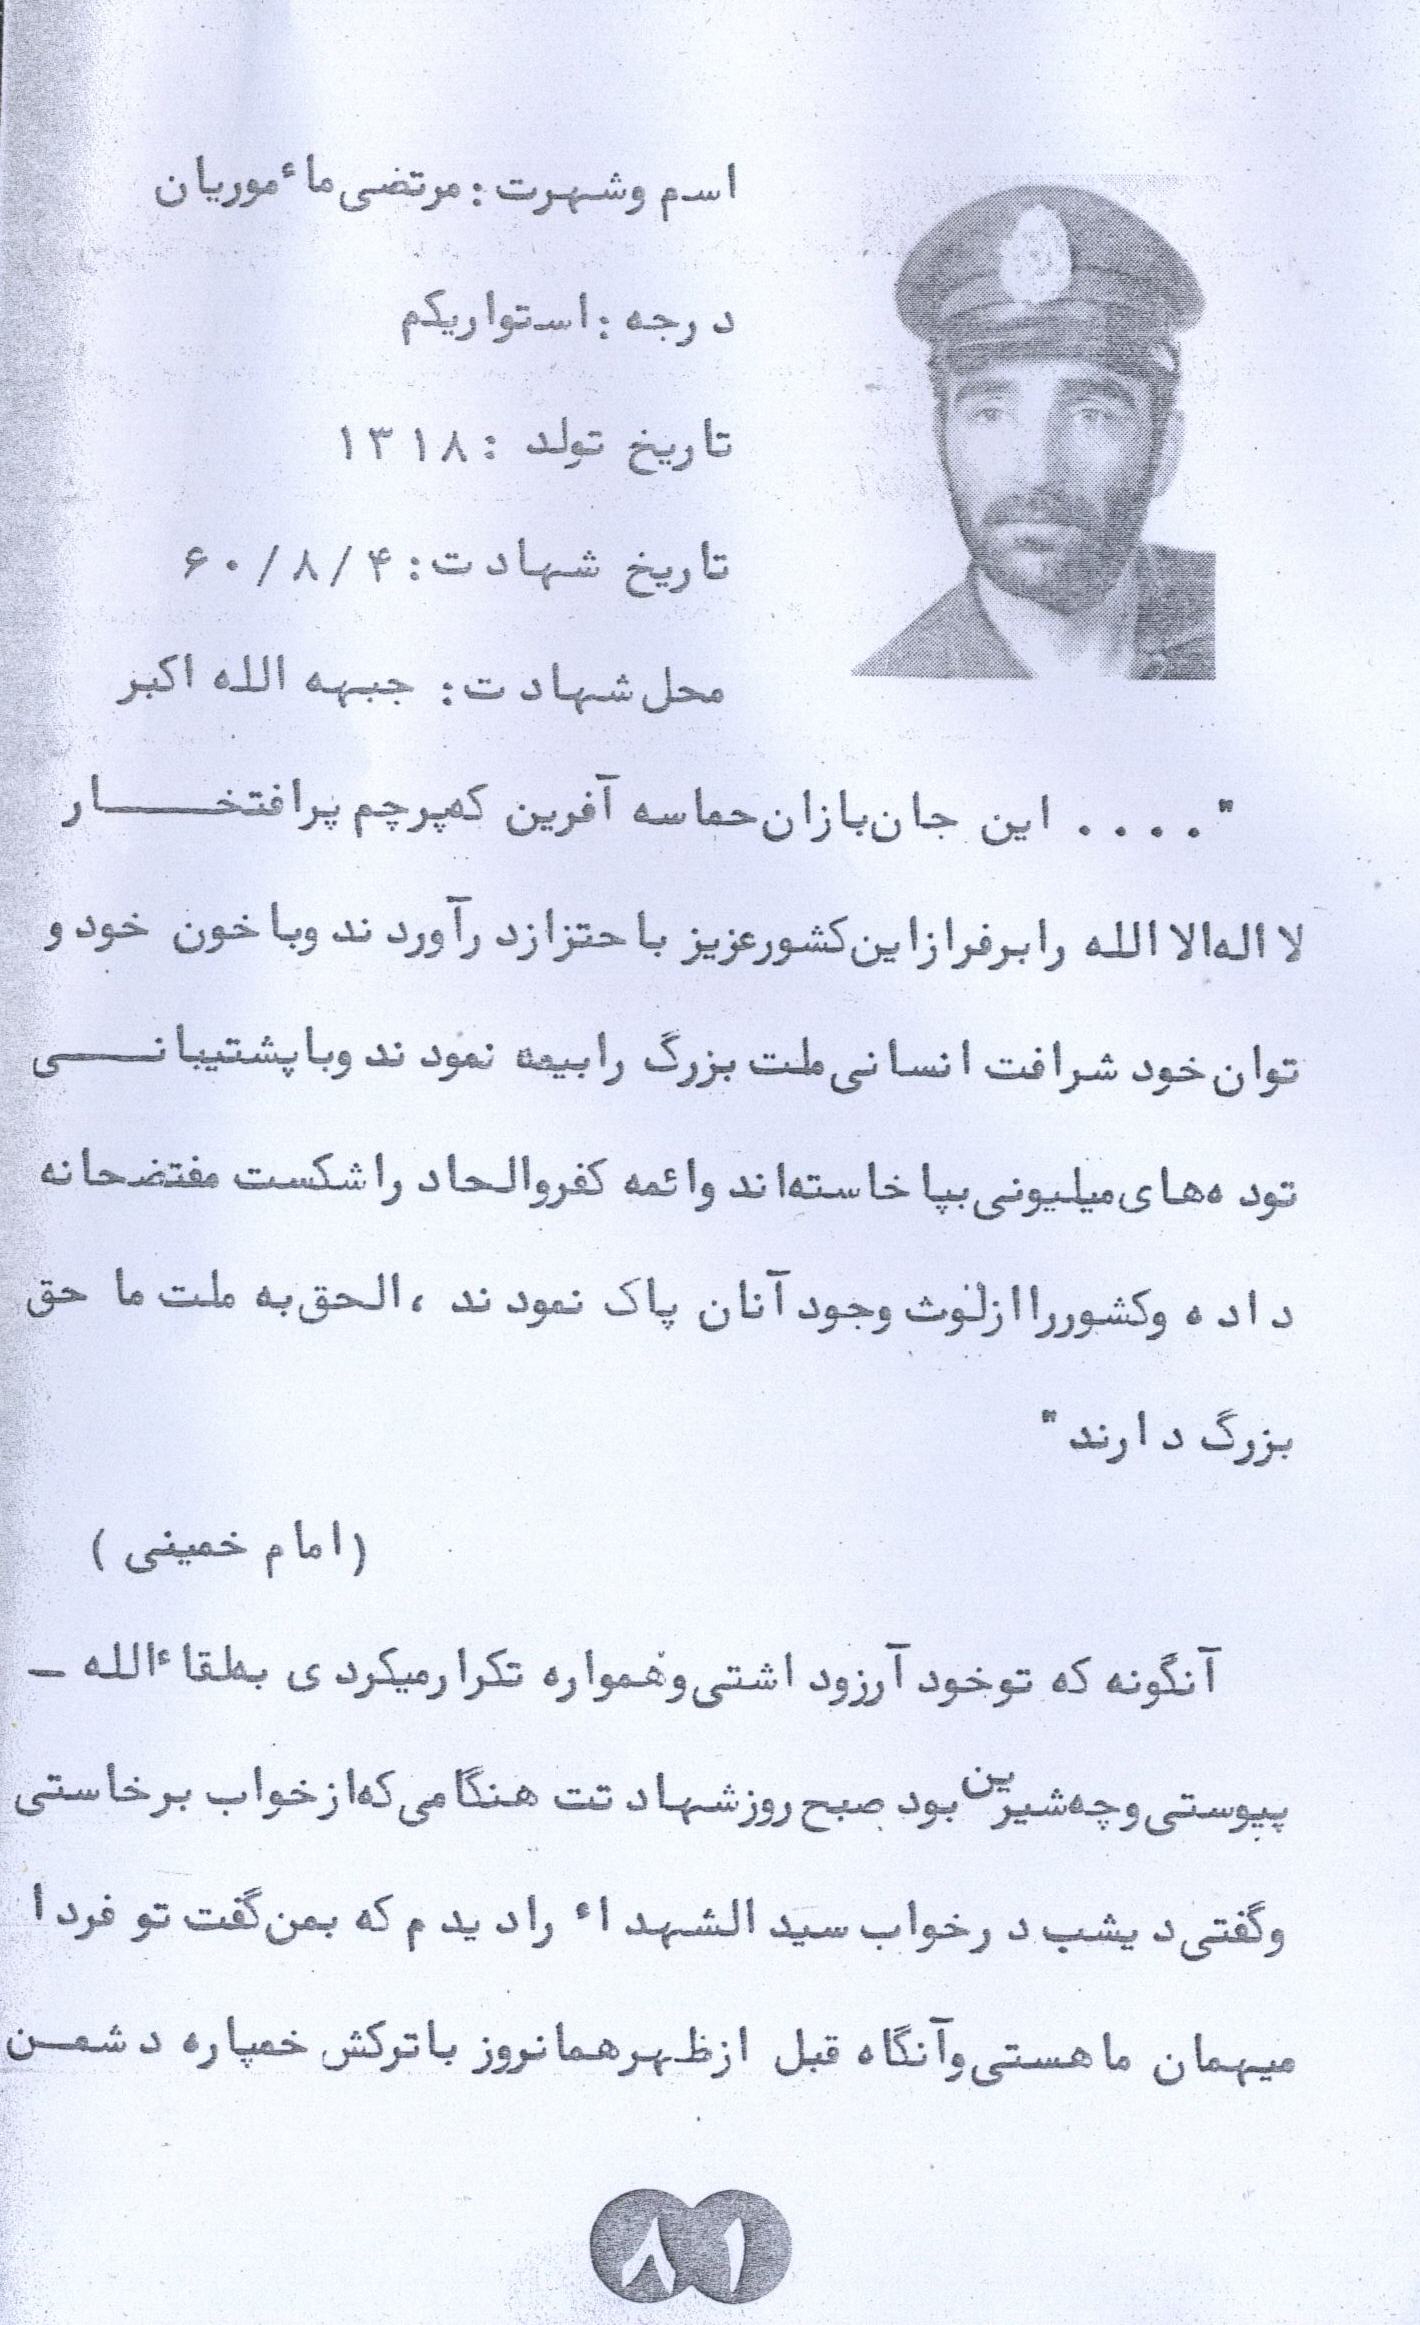 اسم وشهرت : مرتضی ماٴموریان
درجه : استواریکم
تاریخ تولد : ۱۳۱۸
تاریخ شهادت : ۶۰/۸/۴
محل شهادت : جبهه الله اکبر
" . . . . این جان‌بازان حماسه آفرین که‌پرچم پرافتخـــــار
لا اله‌الا الله را برفراز این‌کشورعزیز با حتزاز درآوردند وبا خون خود و
توان خود شرافت انسانی ملت بزرگ را بیمه نمودند وبا پشتیبانــــی
توده‌های میلیونی بپا خاسته‌اند وائمه کفروالحاد را شکست مفتضحانه
داده وکشوررا ازلوث وجود آنان پاک نمودند ، الحق به ملت ما حق
بزرگ دارند "
( امام خمینی )
آنگونه که توخود آرزوداشتی وهمواره تکرارمیکردی به‌لقاءالله –
پیوستی وچه‌شیرین بود صبح روزشهادتت هنگامی که‌ازخواب برخاستی
وگفتی دیشب درخواب سید الشهداء را دیدم که بمن گفت تو فردا
میهمان ما هستی وآنگاه قبل ازظهرهمانروز با ترکش خمپاره دشمــن
۸۱